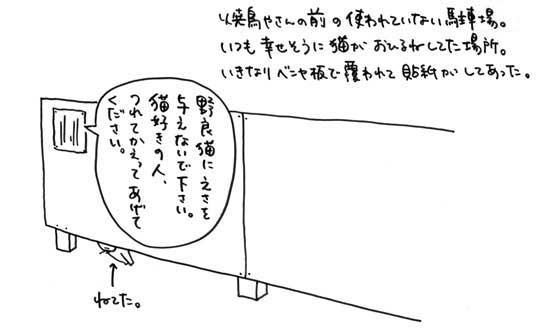 焼鳥やさんの前の使われていない駐車場。
いつも幸せそうに猫がおひるねしてた場所。
いきなりベニヤ板で覆われて貼紙がしてあった。
野良猫にえさを
与えないで下さい。
猫好きの人、
つれてかえってあげて
ください。
ねてた。